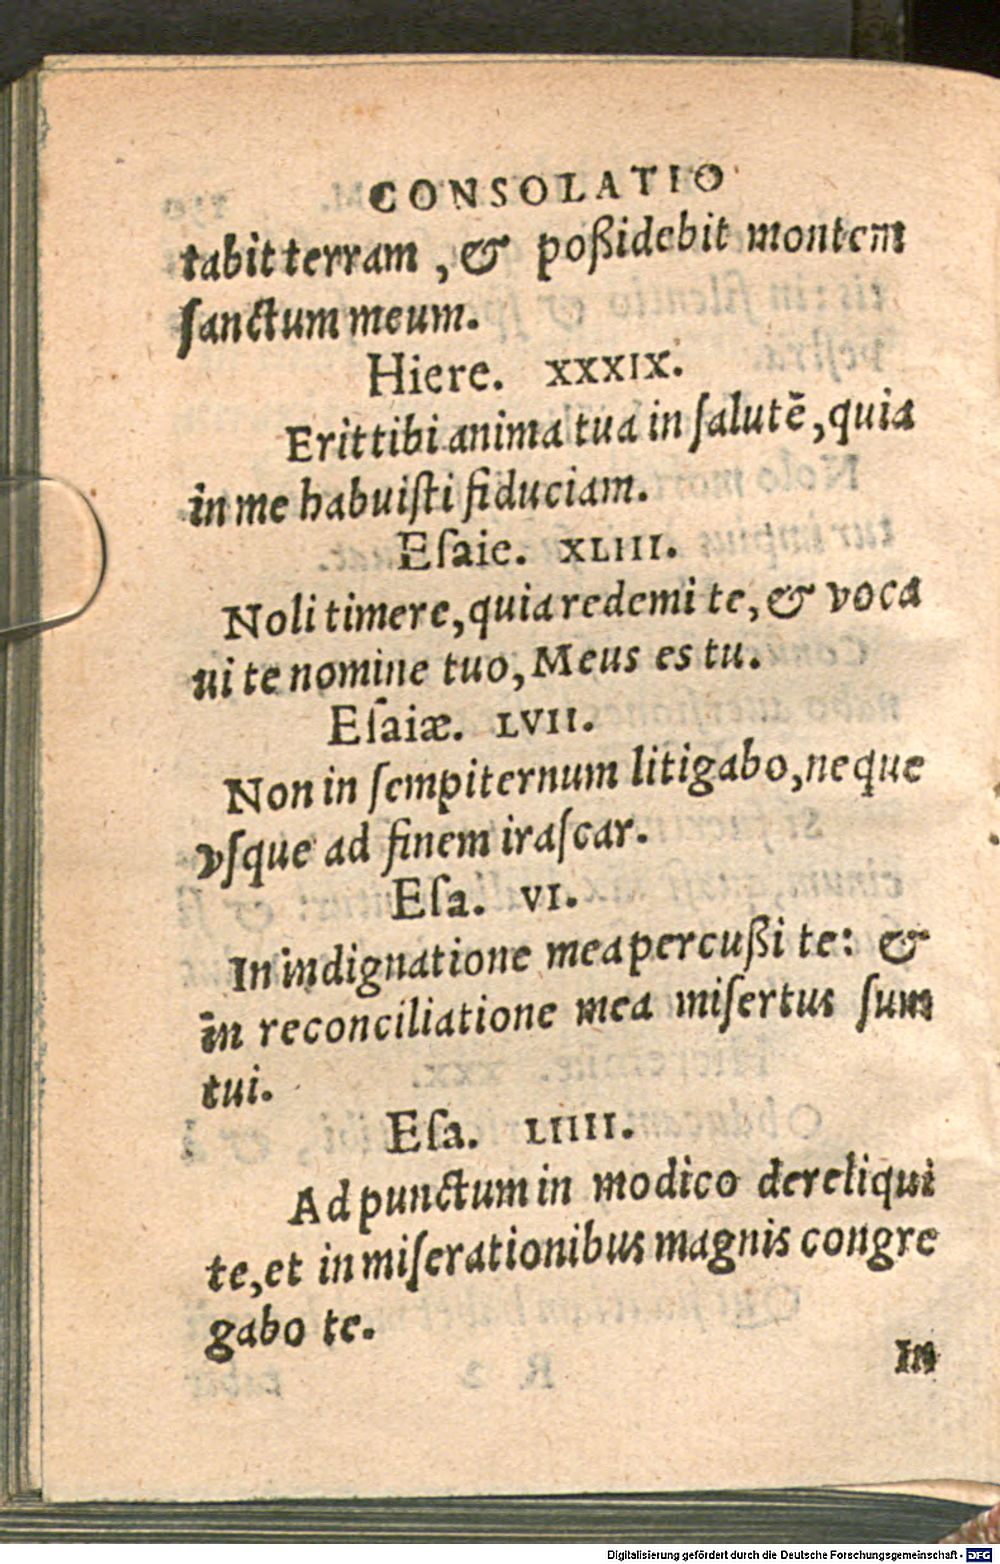 CONSOLATIO
tabit terram, & poßidebit montem
ſanctum meum.
Hiere. XXXIX.
Erit tibi anima tua in ſalutē, quia
in me habuiſti fiduciam.
Eſaie. XLIII.
Noli timere, quia redemi te, & voca
ui te nomine tuo, Meus es tu.
Eſaiæ. LVII.
Non in ſempiternum litigabo, neque
vſque ad finem iraſcar.
Eſa. VI.
In indignatione mea percußi te: &
in reconciliatione mea miſertus ſum
tui.
Eſa. LIIII.
Ad punctum in modico dereliqui
te, et in miſerationibus magnis congre
gabo te.
In
Digitalisierung gefördert durch die Deutsche Forschungsgemeinschaft - DFG